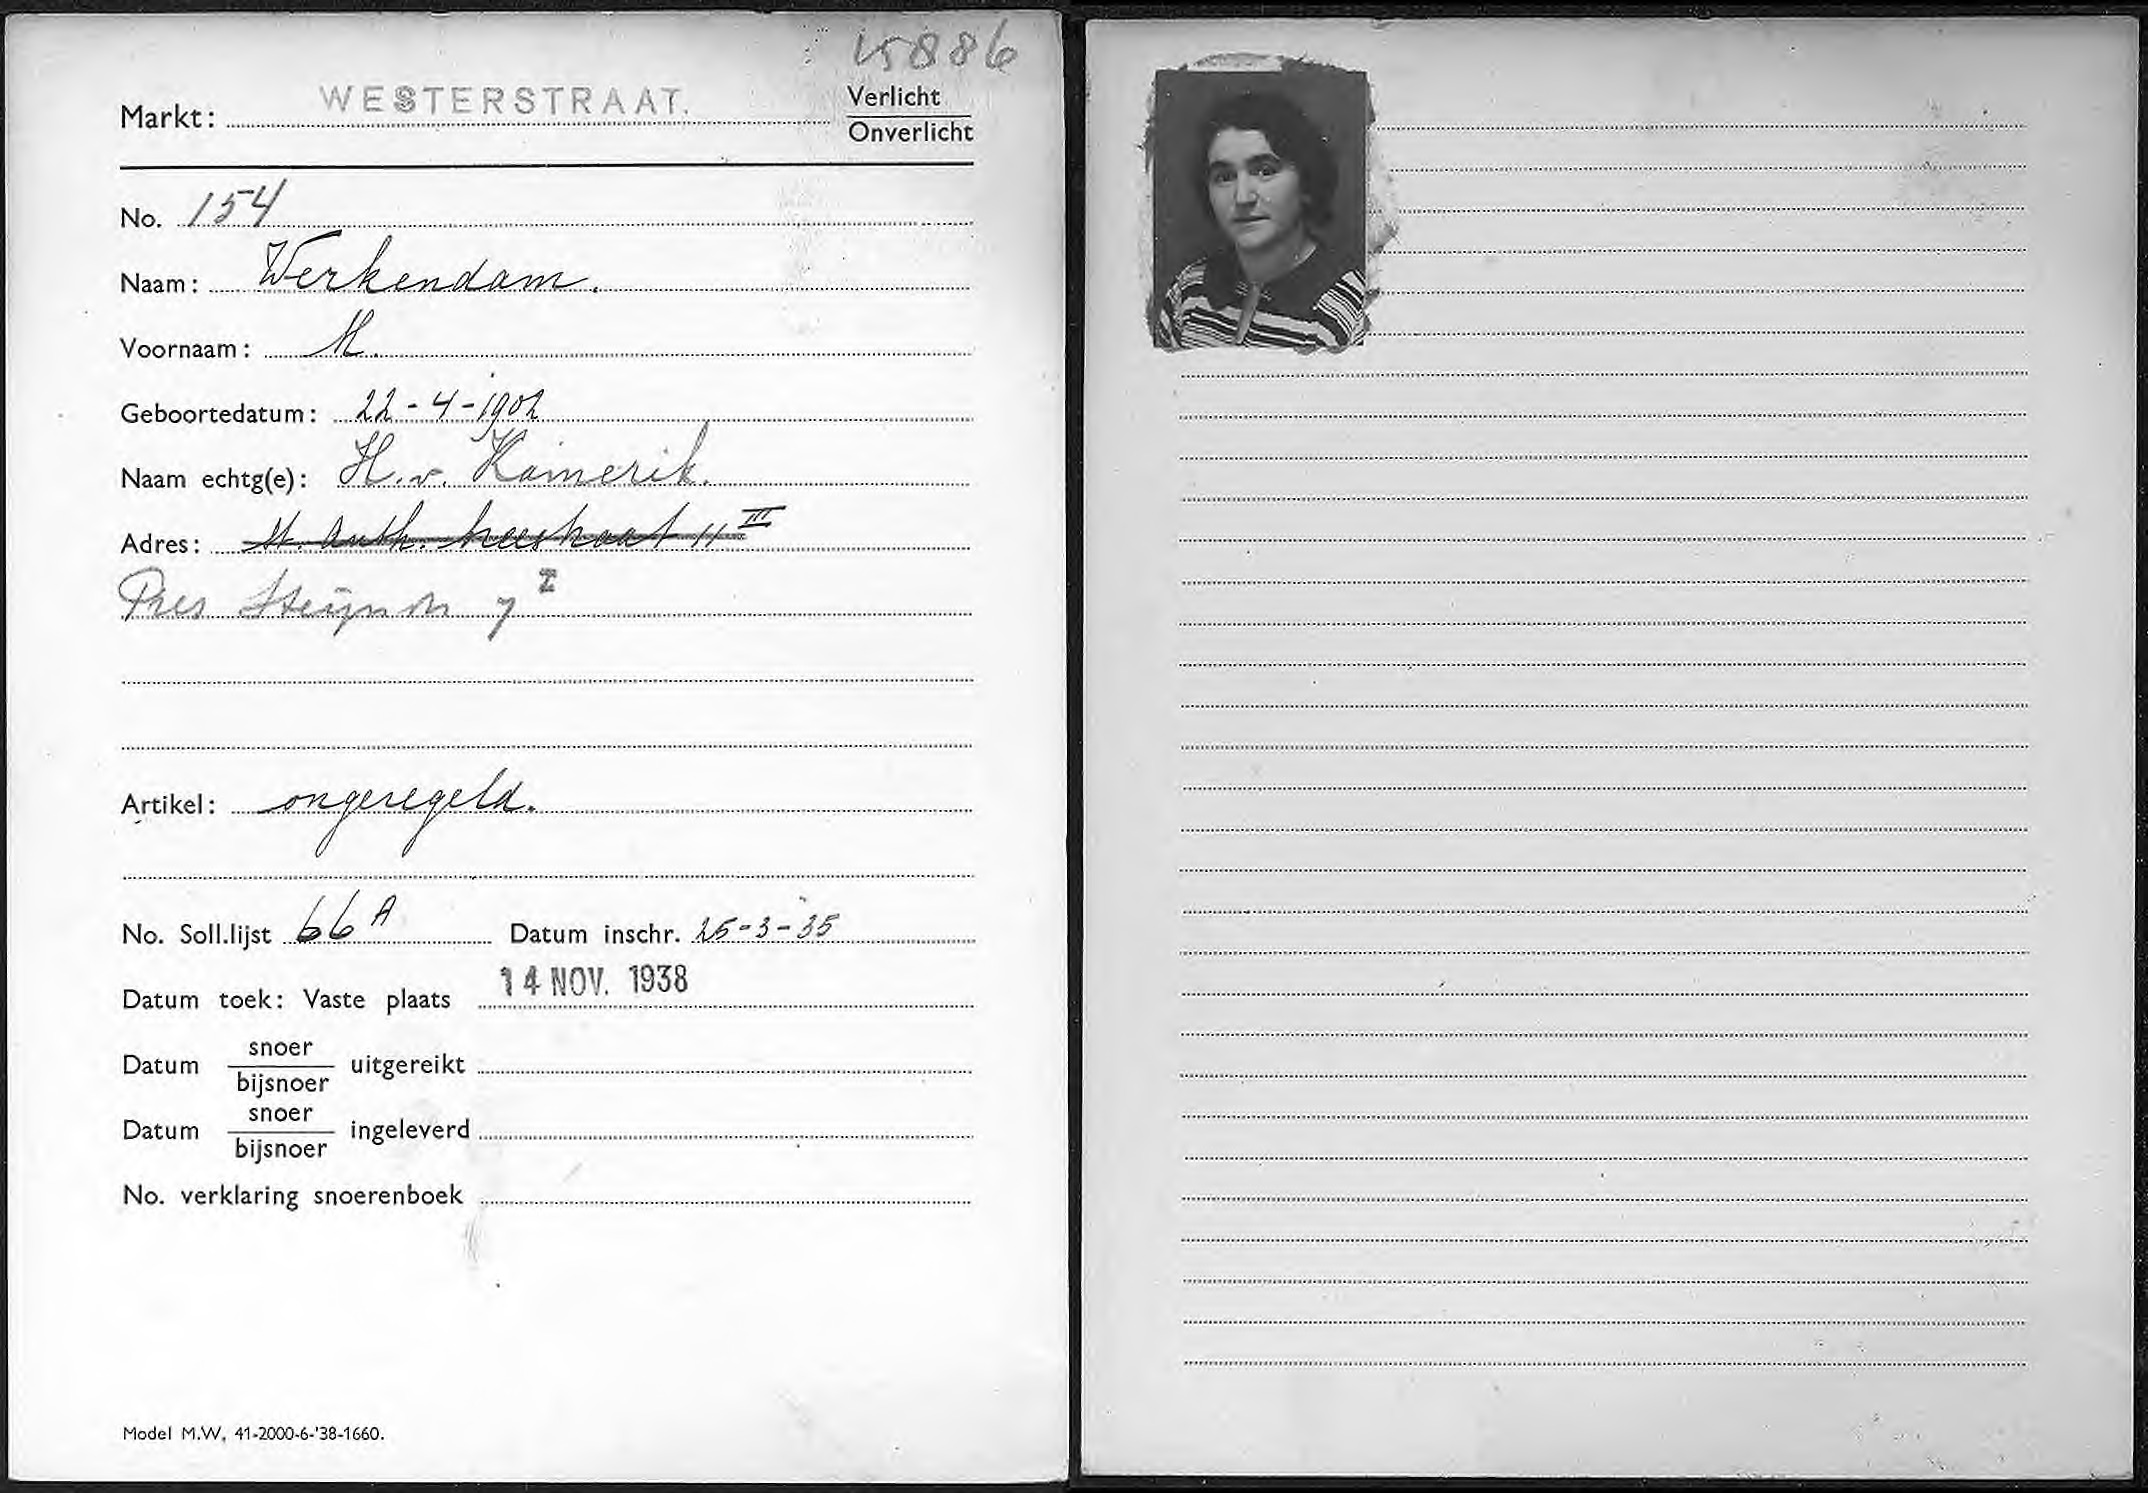 15886
Markt: WESTERSTRAAT.
Verlicht
Onverlicht
No. 154
Naam: Werkendam.
Voornaam: M.
Geboortedatum: 22-4-1902
Naam echtg(e): H. v. Kamerik.
Adres: St. Anth. breestraat 11 III
Pres Steijnstr 7 I
Artikel: ongeregeld.
No. Soll.lijst 66 A Datum inschr. 25-3-35
Datum toek: Vaste plaats 14 NOV. 1938
Datum snoer
bijsnoer uitgereikt
Datum snoer
bijsnoer ingeleverd
No. verklaring snoerenboek
Model M.W, 41-2000-6-'38-1660.